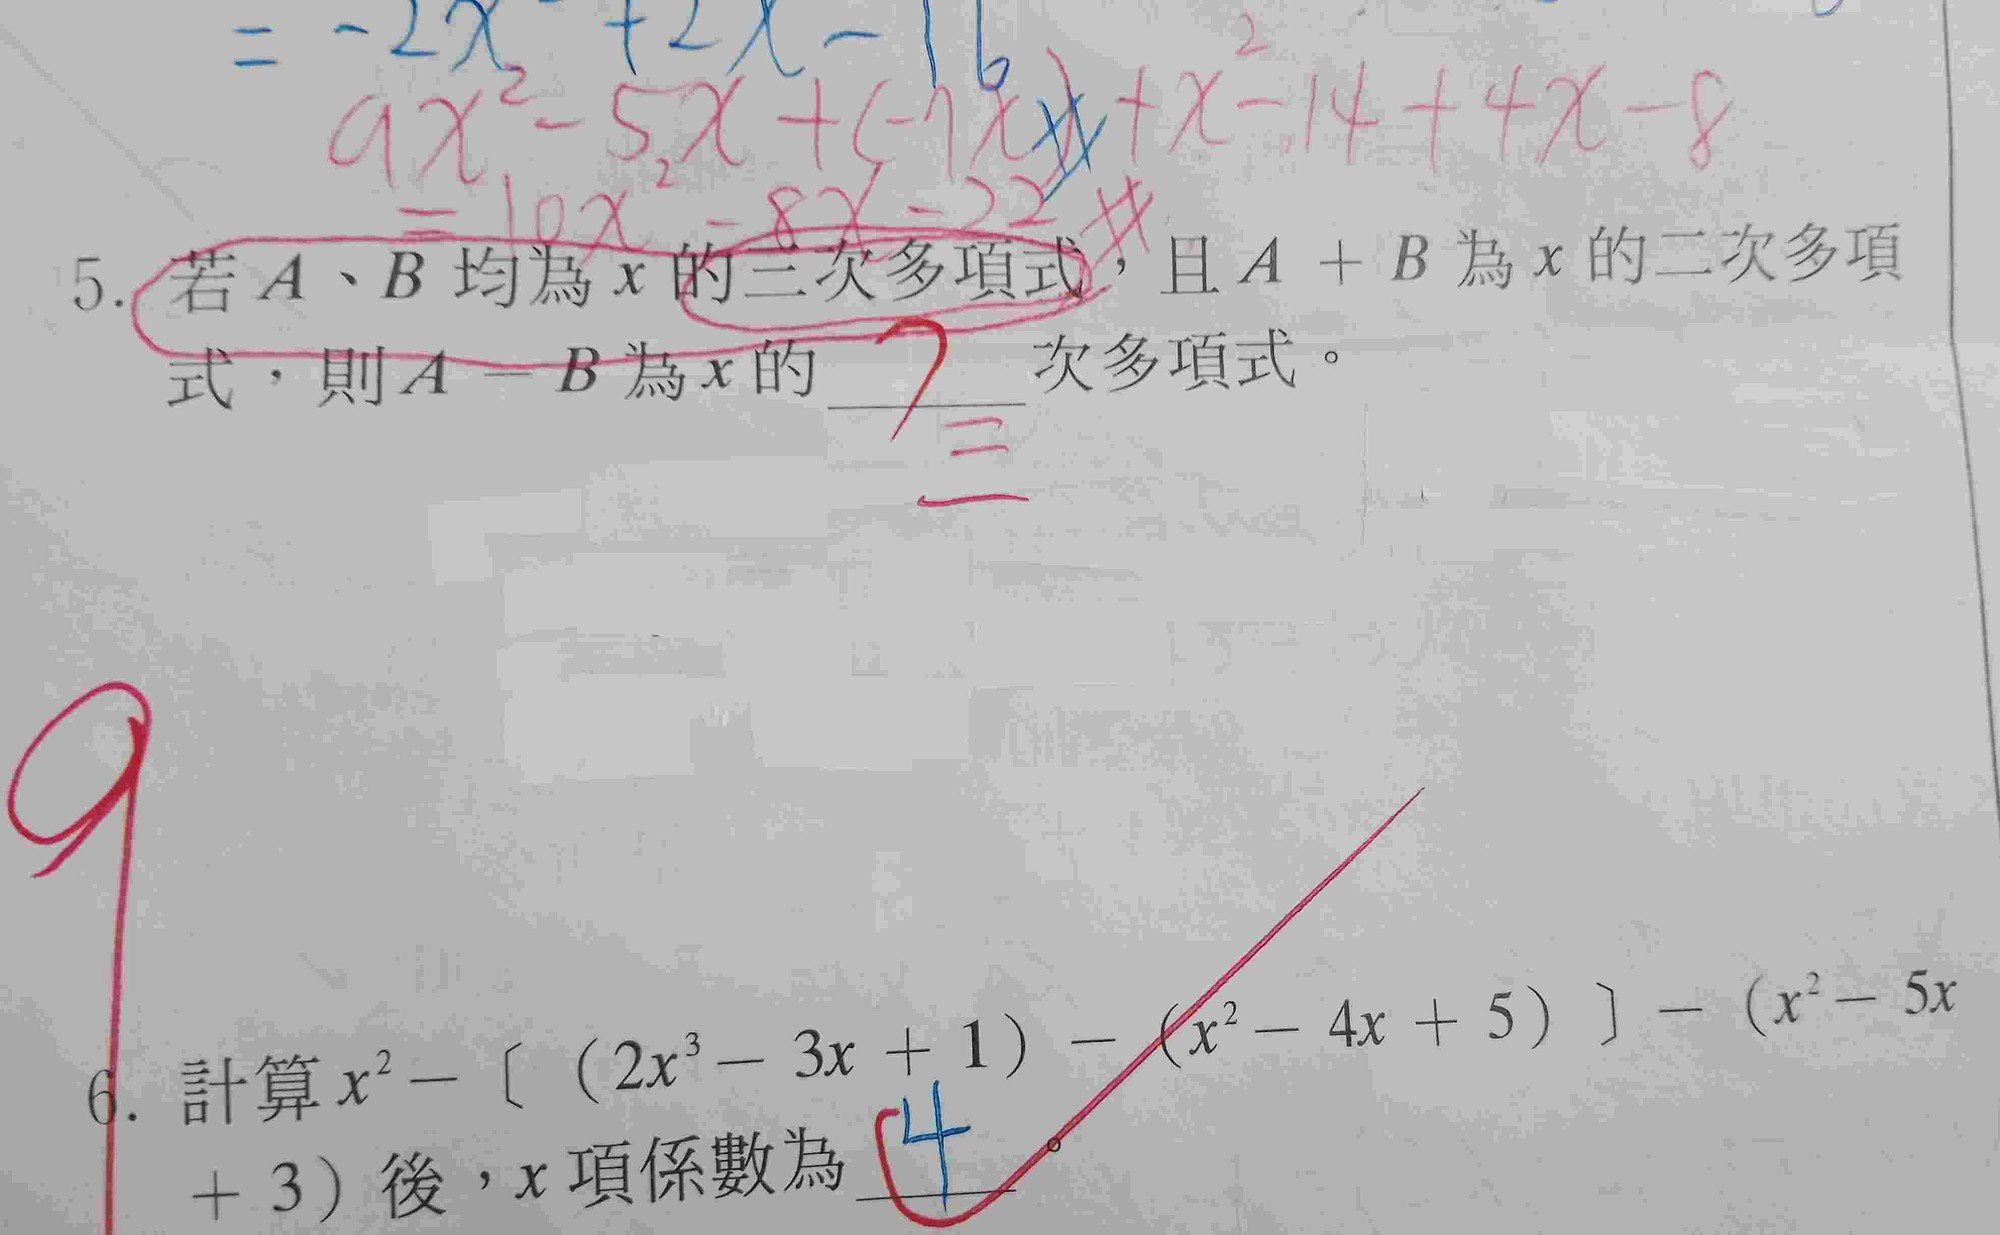 = -2x² + 2x - 16
9x² - 5x + (-7x) + x² - 14 + 4x - 8
= 10x² - 8x - 22 #
5. 若 A、B 均為 x 的三次多項式，且 A + B 為 x 的二次多項
式，則 A - B 為 x 的 ＿＿＿ 次多項式。
三
6. 計算 x² - 〔 (2x³ - 3x + 1) - (x² - 4x + 5) 〕 - (x² - 5x
+ 3) 後，x 項係數為 4 。